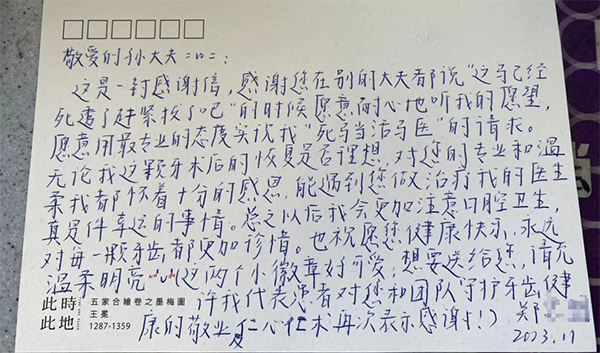 敬爱的孙大夫:
这是一封感谢信,感谢您在别的大夫都说“这马已经
死透了赶紧拔了吧”的时候愿意耐心地听我的愿望,
愿意用最专业的态度实试我“死马当活马医”的请求。
无论我这颗牙术后的恢复是否理想,对您的专业和温
柔我都怀着十分的感恩,能遇到您做治疗我的医生
真是件幸运的事情。总之以后我会更加注意口腔卫生,
对每一颗牙齿都更加诊惜。也祝愿您健康快乐,永远
温柔明亮 这两个小徽章好可爱,想要送给您,请允
许我代表患者对您和团队守护牙齿健
康的敬业 仁心仁术再次表示感谢!)
郑
2023.11
此時
此地
五家合繪卷之墨梅圖
王冕
1287-1359